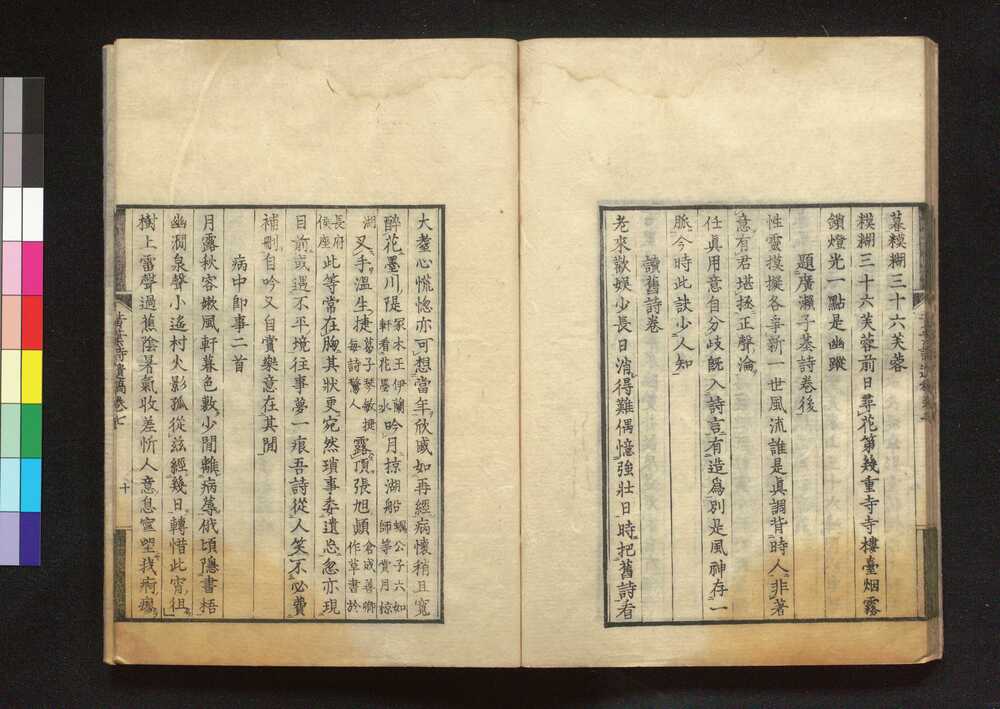 暮糢糊三十六芙蓉
糢糊三十六芙蓉前日尋花第幾重寺寺樓臺烟霧
鎖燈光一點是幽蹤
題廣瀨子基詩卷後
性靈摸擬各爭新一世風流誰是眞調背時人非著
意有君堪拯正聲淪
任眞用意自分歧旣入詩言有造爲別是風神存一
脈今時此訣少人知
讀舊詩卷
老來歡娛少長日消得難偶憶強壯日時把舊詩看
大耋心慌惚亦可想當年欣戚如再經病懷稍且寬
醉花墨川隄家木王伊蘭軒看花墨水吟月掠湖船蠣公子六如師等賞月掠
湖叉手溫生捷葛子琴敏捷每詩驚人露頂張旭顚倉成善卿作草書於
長府侯座此等常在胸其狀更宛然瑣事委遺忘忽亦現
目前或遇不平境往事夢一痕吾詩從人笑不必費
補刪自吟又自賞樂意在其閒
病中卽事二首
月露秋容嫩風軒暮色數少閒離病蓐俄頃隱書梧
幽澗泉聲小遙村火影孤從茲經幾日轉惜此宵徂
樹上雷聲過蕉陰暑氣收差忻人意息寧望我痾瘳
黃葉詩遺稿卷七
十